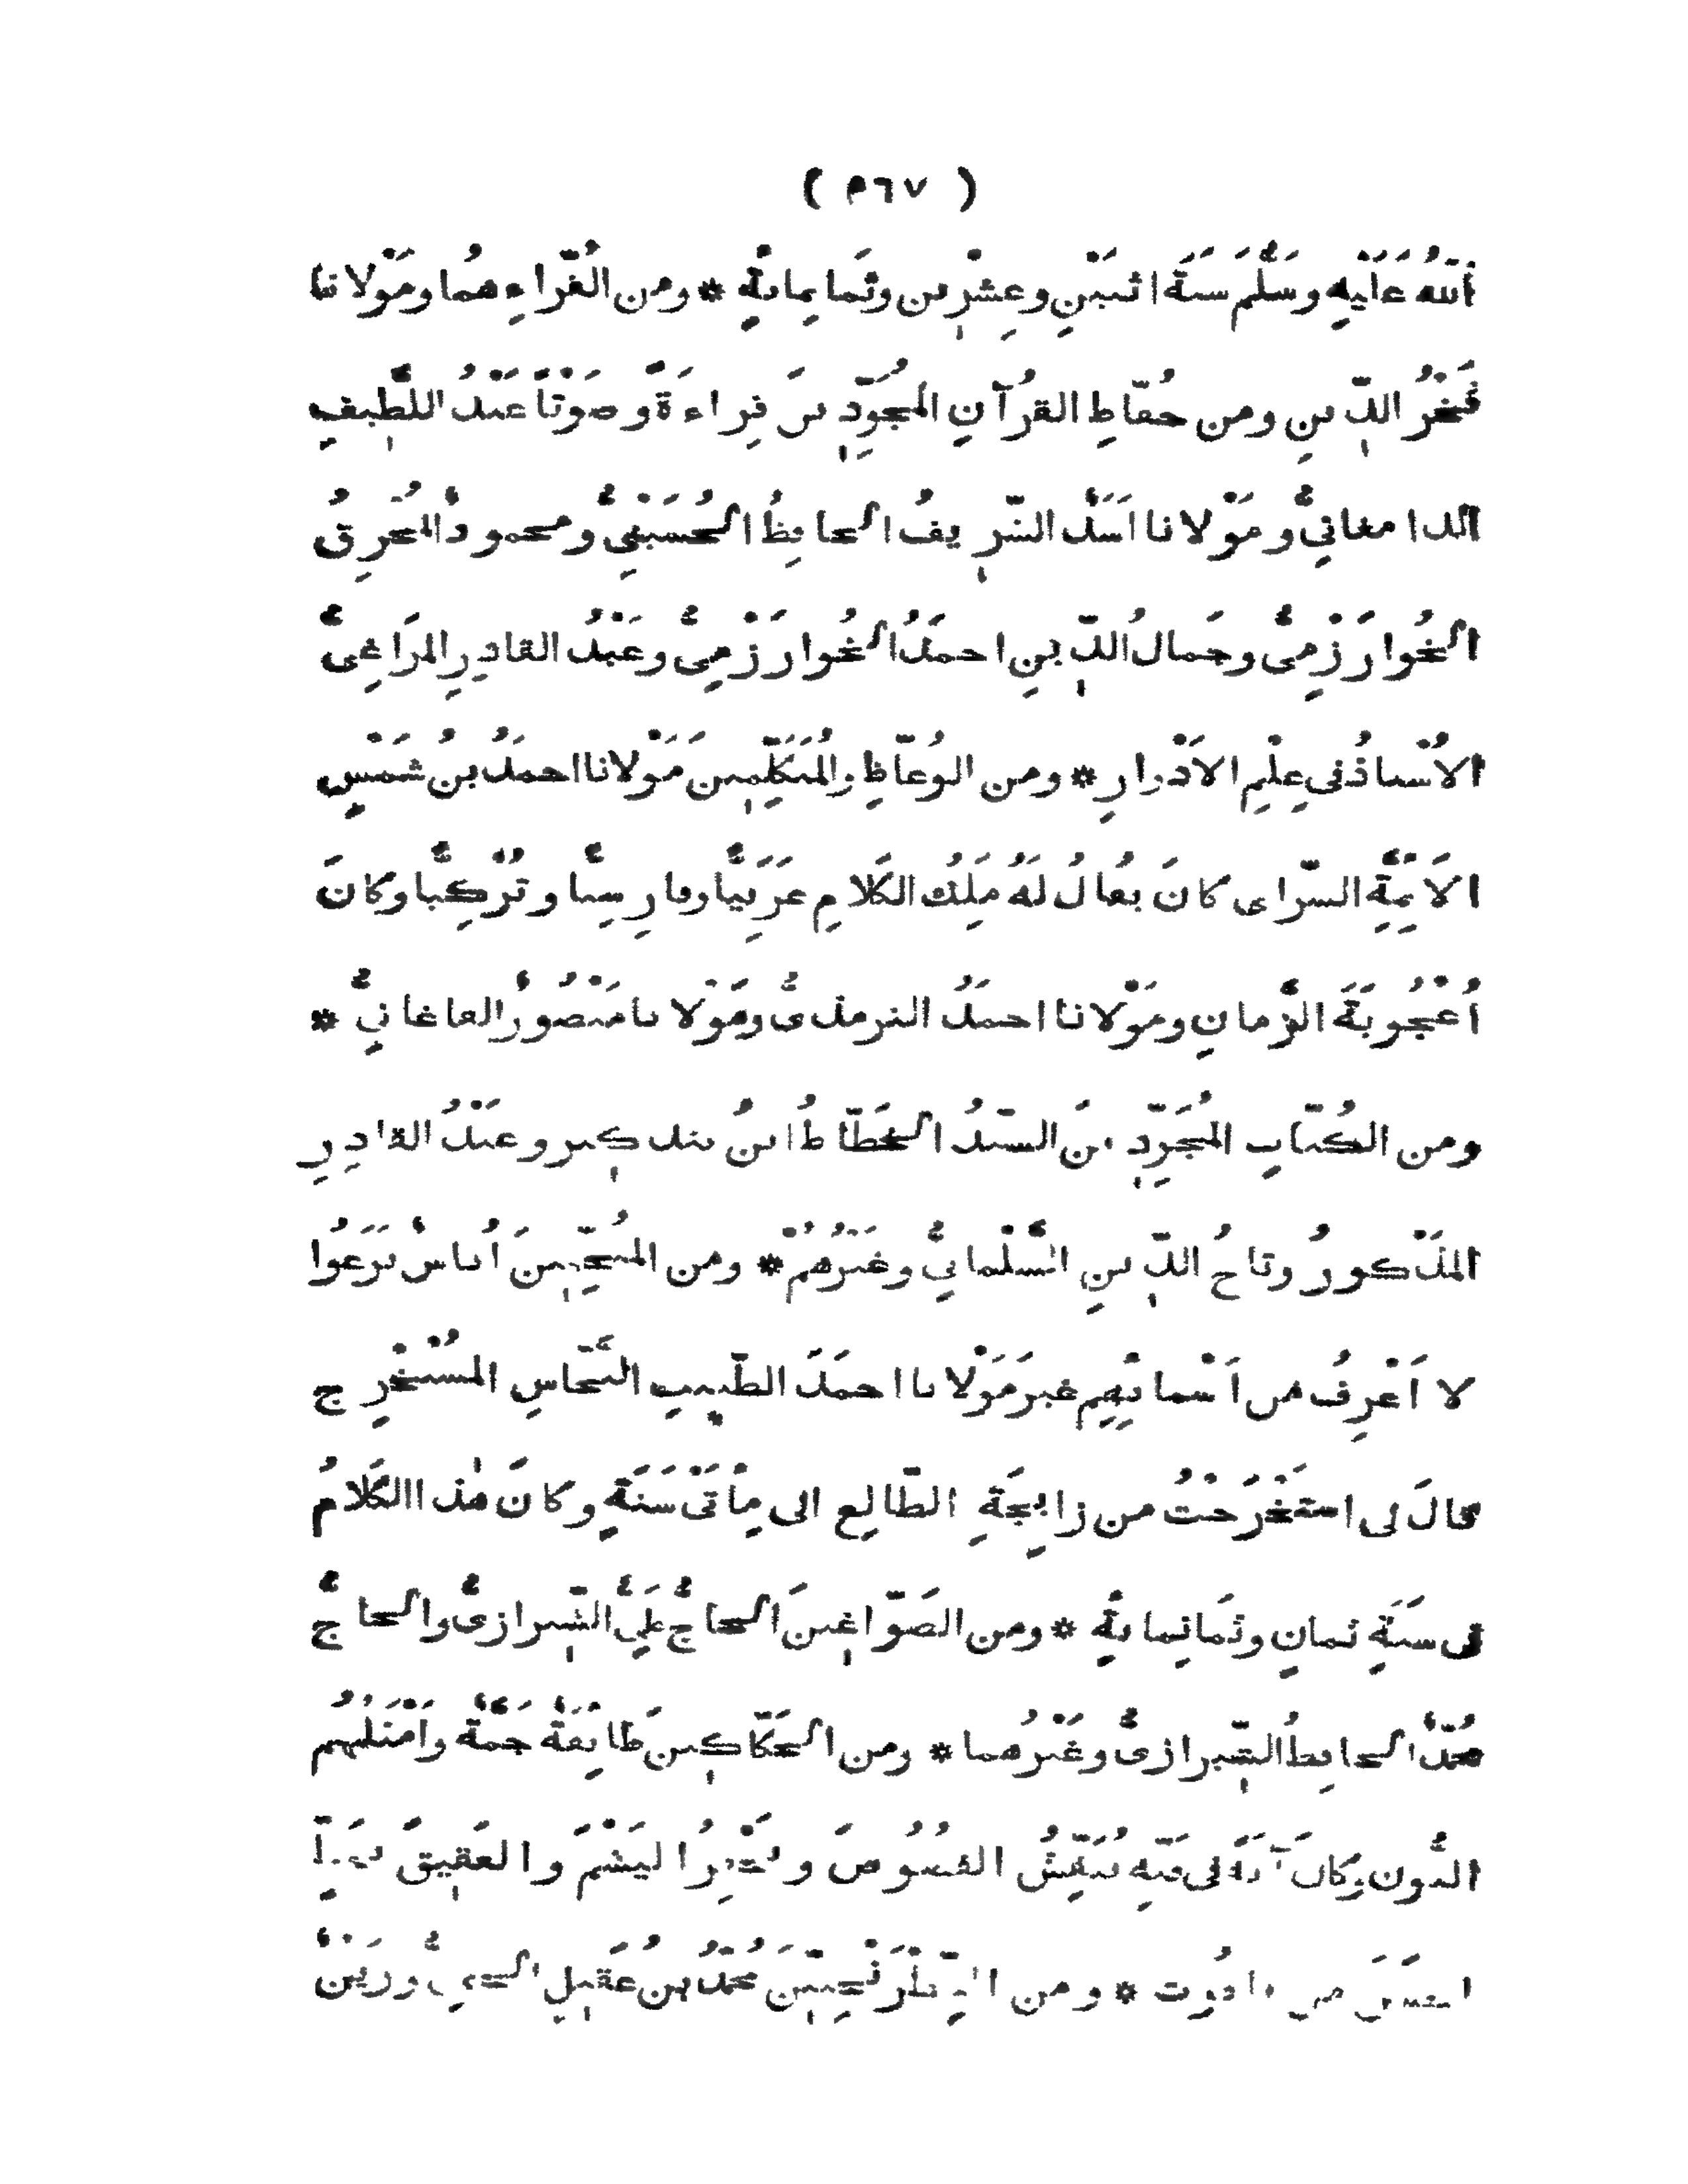 ( ٤٦٧ )
اللهُ عَلَيْهِ وسَلَّمَ سَنَةَ اثنَيْنِ وعِشْرِين وثَمانِمايةٍ * ومن القُرّاءِ هُما ومَوْلانا
فَخْرُ الدِّينِ ومن حُفّاظِ القرُآنِ المُجَوِّدِينَ قِراءَةً وصَوْتاً عَبْدُ اللَّطِيفِ
الدامغانِيُّ ومَوْلانا اَسَدُ الشَّرِيفُ الحافِظُ الحُسَيْنِيُّ ومحمودٌ المُحرِقُ
الخُوارَزْمِىُّ وجَمالُ الدِّينِ احمَدُ الخُوارَزْمِىُّ وعَبْدُ القادِرِ المَراغِىُّ
الاُسْتاذُ فى عِلْمِ الاَدْوارِ * ومن الوُعّاظِ والمُتَكَلِّمِينَ مَوْلانا احمَدُ بنُ شَمْسِ
الاَيِمَّةِ السَّراى كانَ يقالُ لَهُ مَلِكُ الكَلامِ عَرَبِيَّاً وفارِسِيّا وتُرْكِيّا وكانَ
اُعْجُوبَةَ الزَّمانِ ومَوْلانا احمَدُ الترمذىُّ ومَوْلانا مَنْصُورٌ القاغانِيُّ *
ومن الكُتّابِ المُجَوِّدِينَ السيّدُ الخَطّاطُ ابنُ بندكير وعَبْدُ القادِرِ
المَذْكورُ وتاجُ الدِّينِ السَّلْمانِيُّ وغَيْرُهُمْ * ومن المُنَجِّمِينَ اُناسٌ بَرَعُوا
لا اَعْرِفُ من اَسْمائِهِم غيرَ مَوْلانا احمَدَ الطَّبِيبِ النَّحّاسِ المُسْتَخْرِج
قالَ لى استَخْرَجْتُ من زايِجَةِ الطّالِع الى مِأتَىْ سَنَةٍ وكانَ هٰذا الكَلامُ
فى سَنَةِ ثمانٍ وثَمانِمايةٍ * ومن الصَوّاغِينَ الحاجُّ عَلِيُّ الشِّيرازىُّ والحاجُّ
محمّدٌ الحافِظُ الشِّيرازىُّ وغَيْرُهما * ومن الحَكّاكِينَ طايِفَةٌ جَمَّةٌ واَمْثَلُهُم
التُّون وكانَ آيَةً فى فَنِّه يُنَقِّشُ الفُصُوصَ ويَحْفِرُ اليَشْمَ والعَقِيقَ بِخَطٍّ
اَحْسَنَ من ياقُوت * ومن الشِّطْرَنْجِيِّينَ محمّدُ بن عَقِيلِ الخيمِيُّ وزَيْنٌ